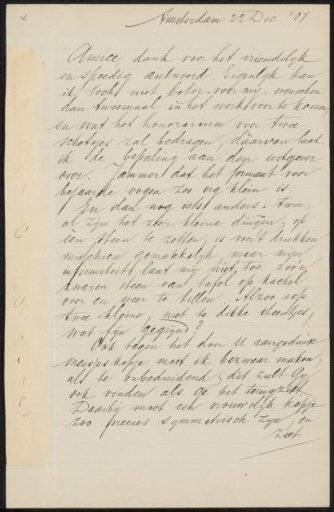 Amsterdam 22 Dec. '07
Amice, dank voor het vriendelijk
en spoedig antwoord. Eigenlijk kan
ik toch niet beter voor mij wenschen
dan tweemaal in het werk voor te komen,
en wat het honorarium voor twee
schetsjes zal bedragen, daarvan laat
ik de bepaling aan den uitgever
over. Jammer dat het formaat voor
bejaarde oogen zoo erg klein is
En dan nog iets anders: twee,
al zijn het zeer kleine dingen, op
één steen te zetten, is voor 't drukken
misschien gemakkelijk, maar mijn
infirmiteit laat mij niet toe zoo'n
zwaren steen van tafel op kachel
over en weer te tillen. Alzoo svp
twee kleine, niet te dikke steentjes,
wat fijn gegrijnd?
Ook tegen het door U aangeduide
meisjeskopje moet ik bezwaar maken,
als te onbeduidend; dit zult Gij
ook vinden als ge het terugziet.
Daarbij moet een vrouwelijk kopje
zoo precies symmetrisch zijn, en
ziet